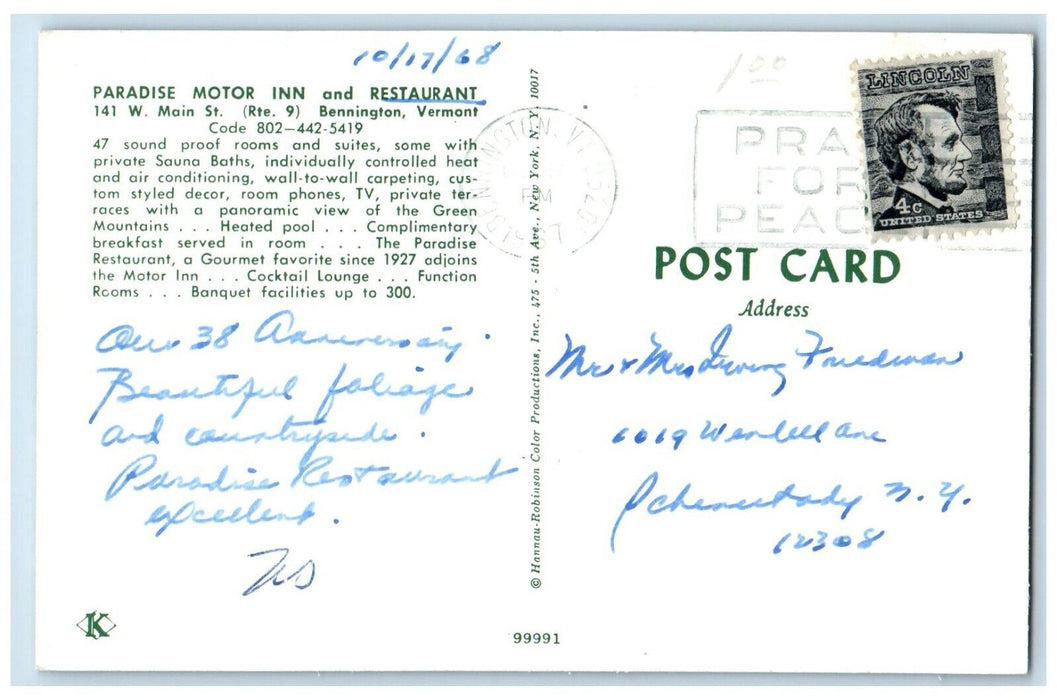 10/17/68
PARADISE MOTOR INN and RESTAURANT
141 W. Main St. (Rte. 9) Bennington, Vermont
Code 802—442-5419
47 sound proof rooms and suites, some with
private Sauna Baths, individually controlled heat
and air conditioning, wall-to-wall carpeting, cus-
tom styled decor, room phones, TV, private ter-
races with a panoramic view of the Green
Mountains . . . Heated pool . . . Complimentary
breakfast served in room . . . The Paradise
Restaurant, a Gourmet favorite since 1927 adjoins
the Motor Inn . . . Cocktail Lounge . . . Function
Rooms . . . Banquet facilities up to 300.
Our 38 Anniversary.
Beautiful foliage
and countryside.
Paradise Restaurant
excellent.
K
© Hannau-Robinson Color Productions, Inc., 475 - 5th Ave., New York, N.Y. 10017
99991
1 00
BENNINGTON, VT
PM
PRA
FOR
PEAC
LINCOLN
4c
UNITED STATES
POST CARD
Address
Mr & Mrs Irving Friedman
1019 Wendell Ave
Schenectady N.Y.
12308